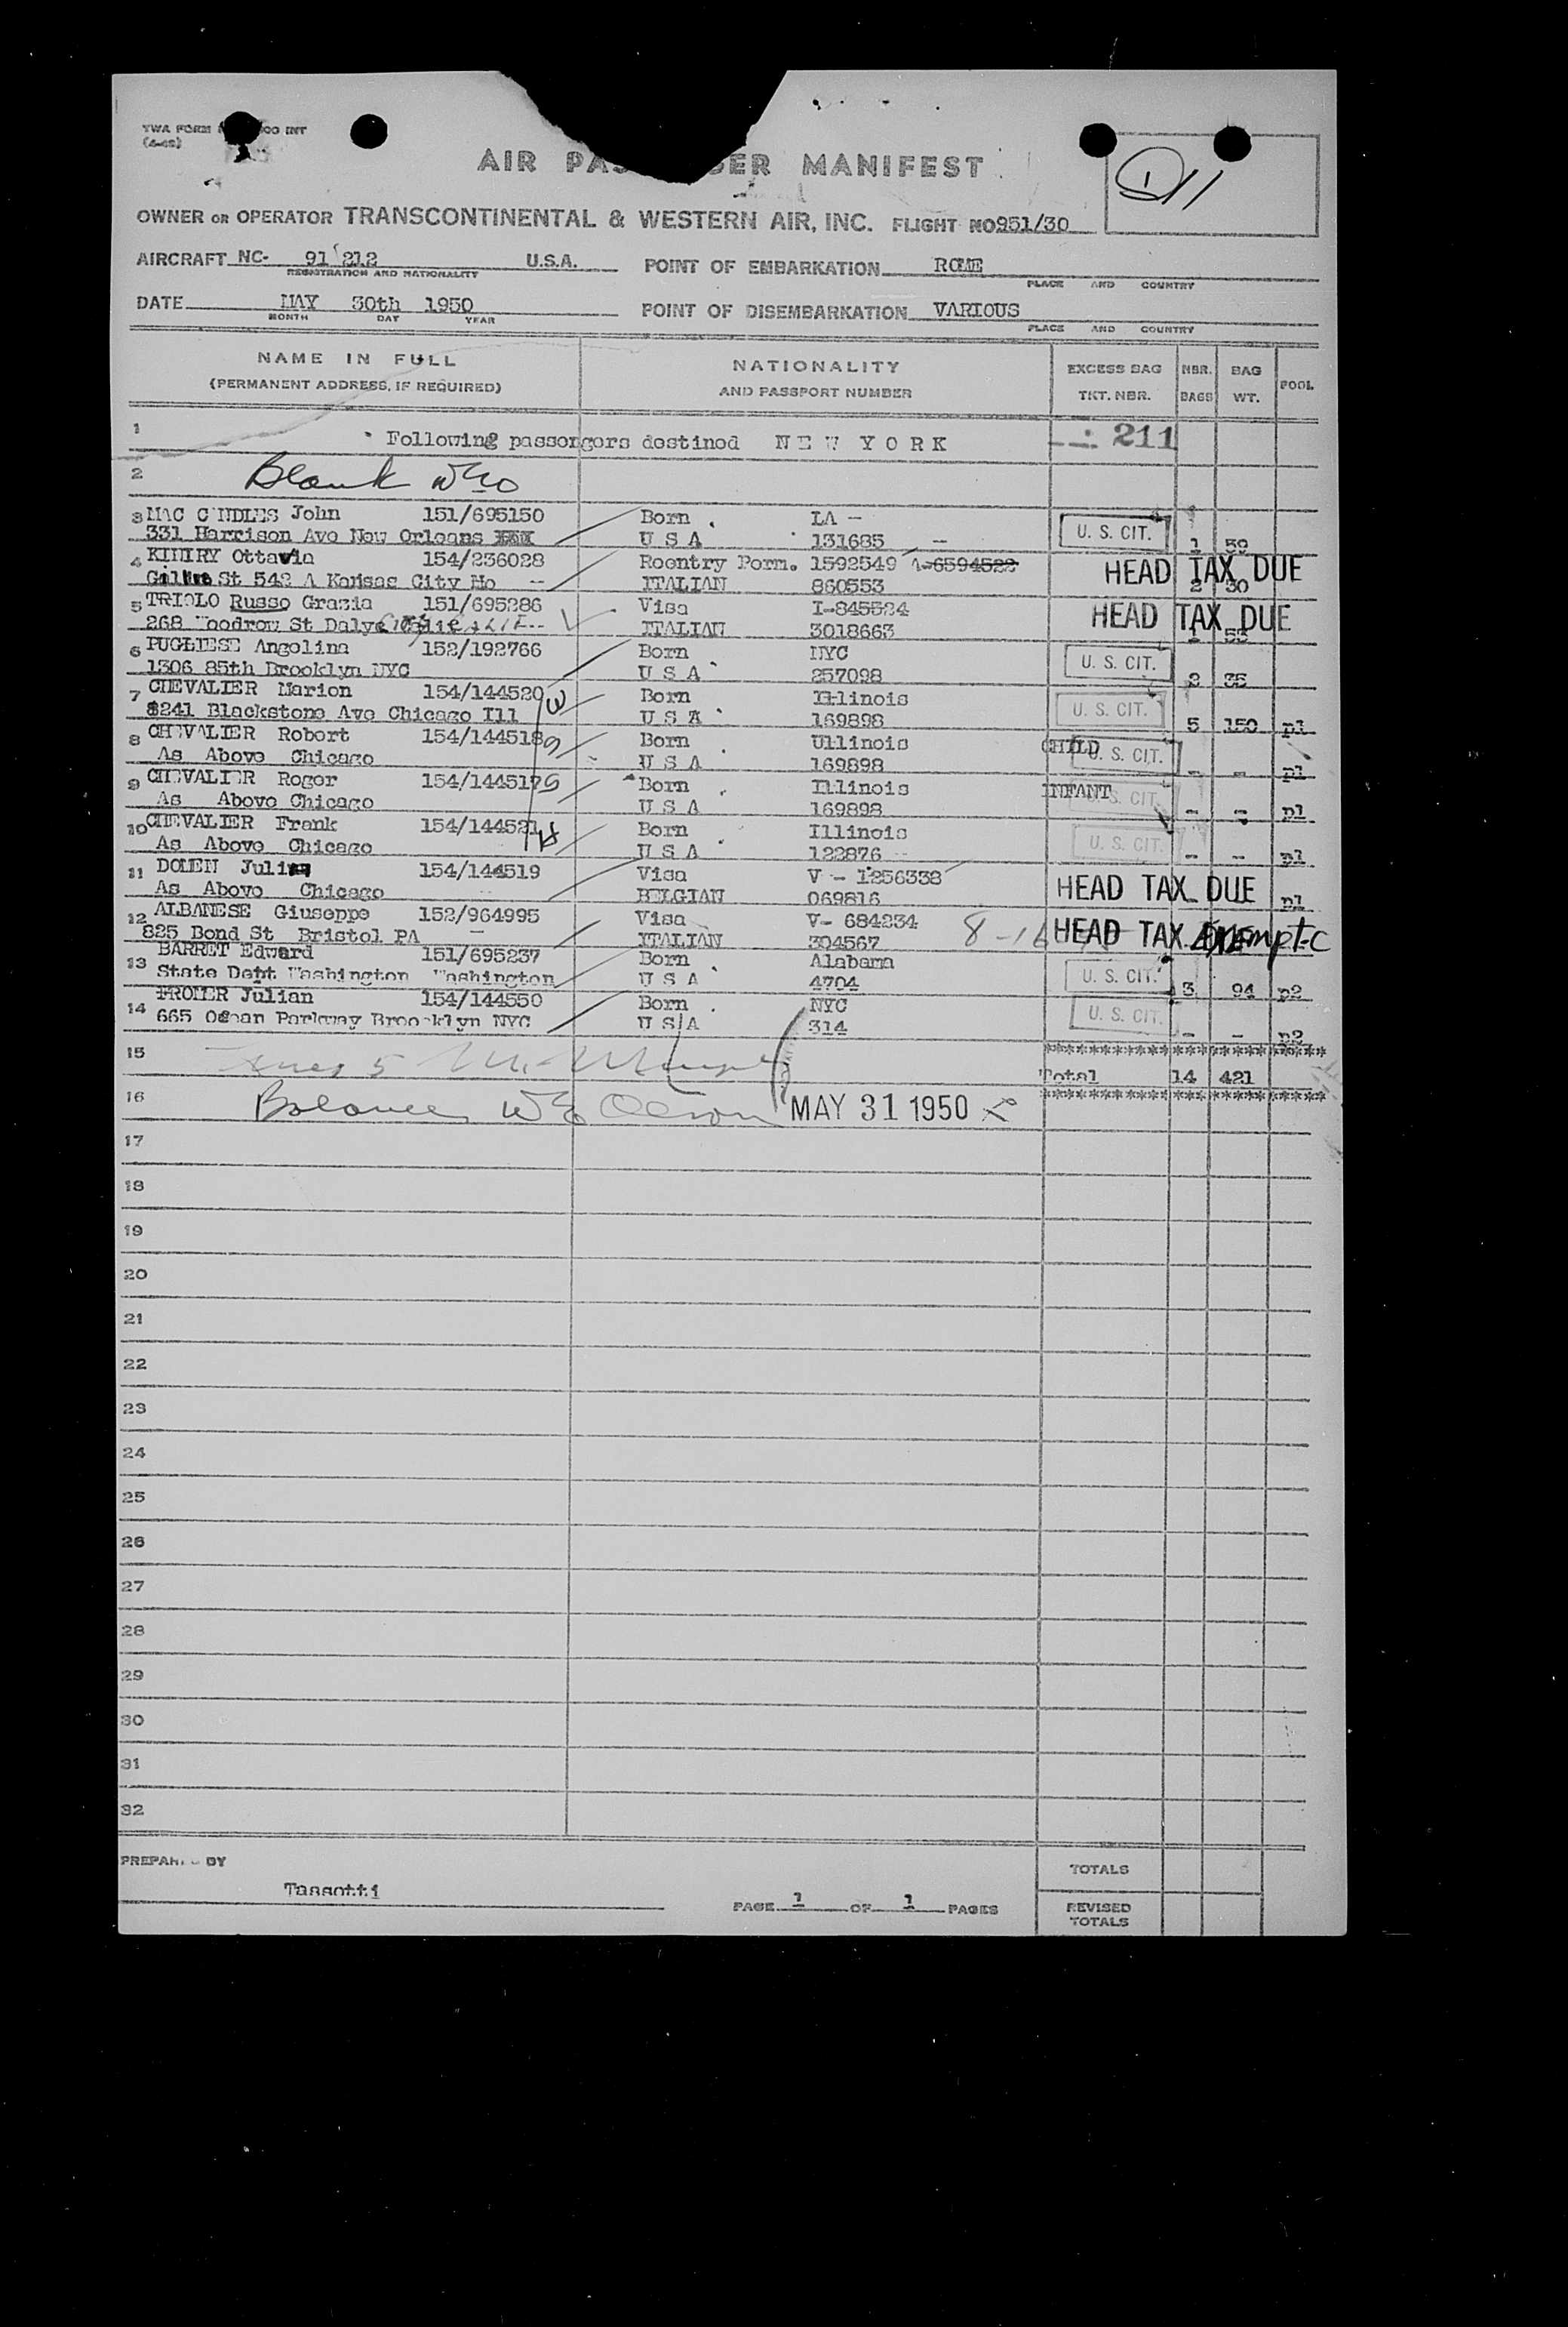 TWA FORM 00 INT
(4-48)
AIR PAS ER MANIFEST
OWNER OR OPERATOR TRANSCONTINENTAL & WESTERN AIR, INC. FLIGHT NO 951/30
AIRCRAFT NC- 91 212 U.S.A. POINT OF EMBARKATION ROME
REGISTRATION AND NATIONALITY PLACE AND COUNTRY
DATE MAY 30th 1950 POINT OF DISEMBARKATION VARIOUS
MONTH DAY YEAR PLACE AND COUNTRY
NAME IN FULL NATIONALITY EXCESS BAG NBR. BAG POOL
(PERMANENT ADDRESS, IF REQUIRED) AND PASSPORT NUMBER TKT. NBR. BAGS WT.
1 Following passengers destined NEW YORK 211
2 Blank
3 MAC C NDLES John 151/695150 Born LA - U. S. CIT.
331 Harrison Ave New Orleans U S A 131685 - 1 59
4 KINIRY Ottavia 154/236028 Reentry Perm. 1592549 A-6594522 HEAD TAX DUE
St 542 A Kansas City Mo -- ITALIAN 860553 2 30
5 TRIOLO Russo Grazia 151/695286 Visa I-845524 HEAD TAX DUE
268 Woodrow St Daly ITALIAN 3018663 1 53
6 PUGLIESE Angelina 152/192766 Born NYC U. S. CIT.
1306 85th Brooklyn NYC U S A 257098 2 35
7 CHEVALIER Marion 154/144520 W Born Illinois U. S. CIT.
8241 Blackstone Ave Chicago Ill U S A 169898 5 150 p1
8 CHEVALIER Robert 154/144518 Born Ullinois CHILD U. S. CIT.
As Above Chicago U S A 169898 - - p1
9 CHEVALIER Roger 154/144517 Born Illinois INFANT U. S. CIT.
As Above Chicago U S A 169898 - - p1
10 CHEVALIER Frank 154/144521 H Born Illinois U. S. CIT.
As Above Chicago U S A 122876 -- - - p1
11 DOMEN 154/144519 Visa V - 1256338 HEAD TAX DUE
As Above Chicago BELGIAN 069816 p1
12 ALBANESE Giuseppe 152/964995 Visa V- 684234 HEAD TAX Exempt-C
825 Bond St Bristol PA - ITALIAN 304567
13 BARRET Edward 151/695237 Born Alabama U. S. CIT.
State Dept Washington Washington U S A 4704 3 94 p2
14 FROMER Julian 154/144550 Born NYC U. S. CIT.
665 Ocean Parkway Brooklyn NYC U S A 314 - - p2
15 Total 14 421
16 Balance MAY 31 1950
17
18
19
20
21
22
23
24
25
26
27
28
29
30
31
32
PREPARED BY TOTALS
Tassotti
PAGE 1 OF 1 PAGES REVISED TOTALS